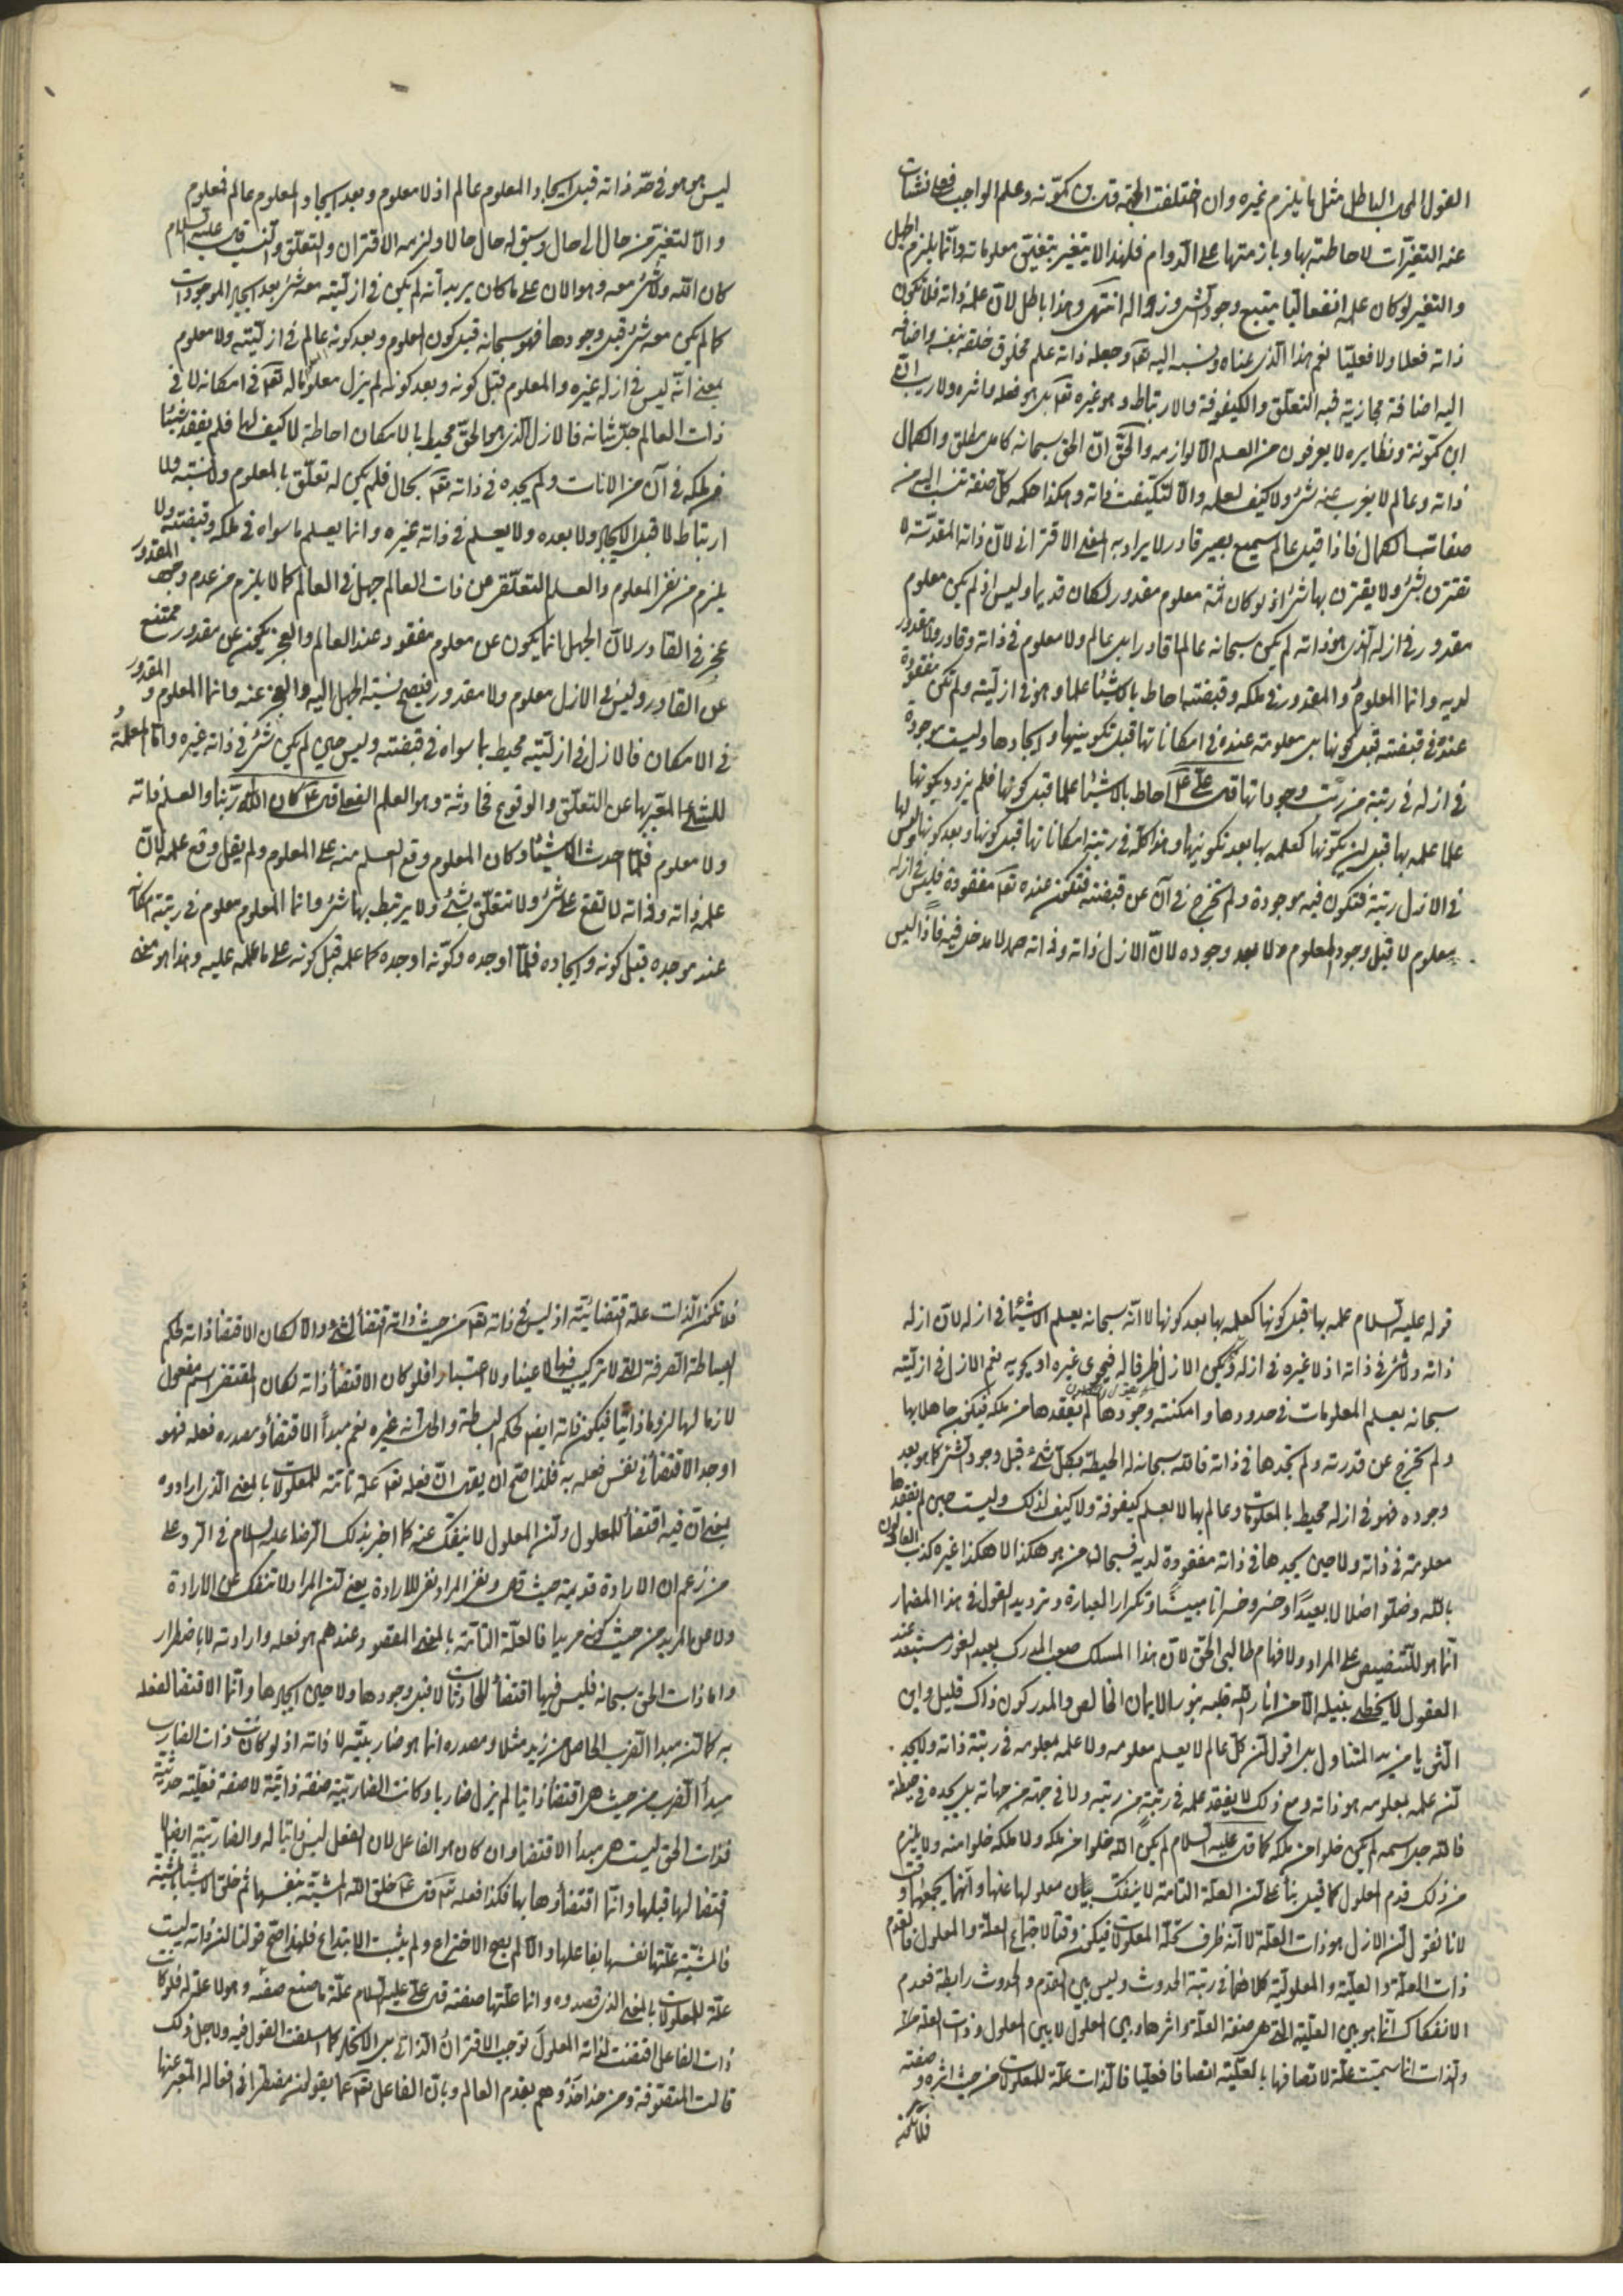 القول الى الباطل مثل ما يلزم غيره وان اختلفت الجهة قال ابن كمونه وعلم الواجب فعلي نشأت
عنه التغيرات لاحاطته بها وبازمنتها على الدوام فلهذا لا يتغير بتغير معلوماته وانما يلزم الجهل
والتغير لو كان علمه انفعاليا يتبع وجود الشيء وزواله انتهى وهذا باطل لان علمه ذاته فلا تكون
ذاته فعلا ولا فعليا نعم هذا الذي عناه ونسبه اليه تعالى وجعله ذاته علم مخلوق خلقه بنفسه واضافه
اليه اضافة مجازية فيه التعلق والكيفوفة والارتباط وهو غيره تعالى بل هو فعله واثره ولا ريب ان
ابن كمونة ونظايره لا يعرفون من العلم الا لوازمه والحق ان الحق سبحانه كامل مطلق والكمال
ذاته وعالم لا يعزب عنه شيء ولا كيف لعلمه والا لتكيفت ذاته وهكذا حكم كل صفة تنسب اليه من
صفات الكمال فاذا قيل عالم سميع بصير قادر لا يراد به المعنى الاقتراني لان ذاته المقدسة لا
تقترن بشيء ولا يقترن بها شيء اذ لو كان ثمة معلوم مقدور لكان قديما وليس اذ لم يكن معلوم
مقدور في ازله الذي هو ذاته لم يكن سبحانه عالما قادرا بل عالم ولا معلوم في ذاته وقادر ولا مقدور
لديه وانما المعلوم والمقدور في ملكه وقبضته احاط بالاشياء علما وهو في ازليته ولم تكن مفقودة
عنده في قبضته قبل كونها بل معلومة عنده في امكاناتها قبل تكوينها وايجادها وليست موجودة
في ازله في رتبة من رتب وجوداتها قال علي ع احاط بالاشياء علما قبل كونها فلم يزدد بكونها
علما علمه بها قبل ان يكونها كعلمه بها بعد تكوينها وهذا كله في رتبة امكاناتها قبل كونها وبعد كونها وليس لها
في الازل رتبة فتكون فيه موجودة ولم تخرج في آن عن قبضته فتكون عنده تعالى مفقودة فليس في ازله
معلوم لا قبل وجود المعلوم ولا بعد وجوده لان الازل ذاته وذاته صمد لا مدخل فيه فاذا ليس
ليس هو هو في صقع ذاته قبل ايجاد المعلوم عالم اذ لا معلوم وبعد ايجاد المعلوم عالم فمعلوم
والا لتغير من حال الى حال وسبق له حال حالا ولزمه الاقتران والتعلق والنسب قال عليه السلام
كان الله ولا شيء معه وهو الان على ما كان يريد انه لم يكن في ازليته معه شيء بعد ايجاد الموجودات
كما لم يكن معه شيء قبل وجودها فهو سبحانه قبل كون المعلوم وبعد كونه عالم في ازليته ولا معلوم
بمعنى انه ليس في ازله غيره والمعلوم قبل كونه وبعد كونه لم يزل معلوما له تعالى في امكانه لا في
ذات العالم جل شانه فالازل الذي هو الحق محيط بالامكان احاطة لا كيف لها فلم يفقد شيئا
من ملكه في آن من الانات ولم يجده في ذاته تعالى بحال فلم يكن له تعلق بالمعلوم ولا نسبة ولا
ارتباط لا قبل الايجاد ولا بعده ولا يعلم في ذاته غيره وانما يعلم ما سواه في ملكه وقبضته ولا
يلزم من نفي المعلوم والعلم التعلقي عن ذات العالم جهل في العالم كما لا يلزم من عدم وجود المقدور
عجز في القادر لان الجهل انما يكون عن معلوم مفقود عند العالم والعجز يكون عن مقدور ممتنع
عن القادر وليس في الازل معلوم ولا مقدور فتصح نسبة الجهل اليه والعجز عنه وانما المعلوم والمقدور
في الامكان فالازل في ازليته محيط بما سواه في قبضته وليس حين لم يكن شيء في ذاته غيره واما العلمية
للشيء المعبر بها عن التعلق والوقوع فحادثة وهو العلم الفعلي قال ع كان الله ربنا والعلم ذاته
ولا معلوم فلما احدث الاشياء وكان المعلوم وقع العلم منه على المعلوم ولم يقل وقع علمه لان
علمه ذاته وذاته لا تقع على شيء ولا تتعلق بشيء ولا يرتبط بها شيء وانما المعلوم معلوم في رتبته امكانه
عند موجده قبل كونه وايجاده فلما اوجده وكونه اوجده كما علمه قبل كونه على ما علمه عليه وهذا هو معنى
قوله عليه السلام علمه بها قبل كونها كعلمه بها بعد كونها لا انه سبحانه يعلم الاشياء في ازله لان ازله
ذاته ولا شيء في ذاته اذ لا غيره في ازله ولم يكن الازل ظرفا له فيحوي غيره او يحويه نعم الازل في ازليته
سبحانه يعلم المعلومات في حدودها وامكنة وجودها لم يفقدها من ملكه فيكون جاهلا بها
ولم تخرج عن قدرته ولم يجدها في ذاته فالله سبحانه له الحيطة بكل شيء قبل وجود الشيء كما هو بعد
وجوده فهو في ازله محيط بالمعلومات وعالم بها لا بعلم كيفوفة ولا كيف لذلك وليست حين لم يفقدها
معلومة في ذاته ولا حين لم يجدها في ذاته مفقودة لديه فسبحان من هو هكذا لا هكذا غيره كذب العادلون
بالله وضلوا ضلالا بعيدا وخسروا خسرانا مبينا وتكرار العبارة وترديد القول في هذا المضمار
انما هو للتنصيص على المراد ولافهام طالبي الحق لان هذا المسلك صعب المدرك بعيد الغور مستبعد عند
العقول لا يحظى بنيله الا من انار الله قلبه بنور الايمان الخالص والمدركون ذاك قليل واين
الثريا من يد المتناول بل اقول ان كل عالم لا يعلم معلومه ولا علمه بمعلومه في رتبة ذاته ولا يجد
ان علمه بمعلومه هو ذاته ومع ذلك لا يفقد علمه في رتبة من رتبه ولا في جهة من جهاته بل يجده في حيطة
فالله جل اسمه لم يكن خلوا من ملكه كما قال عليه السلام لم يكن الله خلوا من ملكه ولا ملكه خلوا منه ولا يلزم
من ذلك قدم المعلول كما قيل بناء على ان العلة التامة لا ينفك معلولها عنها وانهما يجمعهما وقت
لانا نقول ان الازل هو ذات العلة لا انه ظرف تحله المعلولات فيكون وقتا لاجتماع العلة والمعلول فالقدم
ذات العلة والعلية والمعلولية كلاهما في رتبة الحدوث وليس بين القدم والحدوث رابطة فعدم
الانفكاك انما هو بين العلية التي هي صفة العلة واثرها وبين المعلول لا بين المعلول وذات العلة
والذات انما سميت علة لاتصافها بالعلية اتصافا فعليا فالذات علة للمعلولات من حيث اثره وصفته
فلا تكون
فلا تكون الذات علة اقتضائية اذ ليس في ذاته تعالى من حيث ذاته اقتضاء لشيء والا لكان الاقتضاء ذاته لحكم
البساطة الصرفة التي لا تركيب فيها لا عينا ولا اعتبارا فلو كان الاقتضاء ذاته لكان المقتضى اسم مفعول
لازما لها لزوما ذاتيا فيكون ذاته ايضا لحكم البساطة والحال انه غيره نعم مبدأ الاقتضاء ومصدره فعله فهو
اوجد الاقتضاء في نفس فعله به فلذا صح ان يقال ان فعله تعالى علة تامة للمعلولات بالمعنى الذي ارادوه
بمعنى ان فيه اقتضاء للمعلول وان المعلول لا ينفك عنه كما اخبر بذلك الرضا عليه السلام في الرد على
من زعم ان الارادة قديمة حيث قال ونفي المراد نفي للارادة يعني ان المراد لا تنفك عن الارادة
ولا عن المريد من حيث كونه مريدا فالعلة التامة بالمعنى المعقود عندهم هو فعله وارادته لا باضطرار
واما ذات الحق سبحانه فليس فيها اقتضاء للحادثات لا قبل وجودها ولا حين ايجادها وانما الاقتضاء لفعله
به كما ان مبدأ الضرب الحاصل من زيد مثلا ومصدره انما هو ضاربيته لا ذاته اذ لو كانت ذات الضارب
مبدأ الضرب من حيث هي اقتضاء ذاتيا لم يزل ضاربا وكانت الضاربية صفة ذاتية لا صفة فعلية حدثية
فذات الحق ليست هي مبدأ الاقتضاء وان كان هو الفاعل لان الفعل ليس ذاتيا له والضاربية ايضا لا
اقتضاء لها قبلها وانما اقتضاؤها بها فكذا فعله تعالى قال ع خلق الله المشية بنفسها ثم خلق الاشياء بالمشية
فالمشية علتها نفسها بفاعلها والا لم يصح الاختراع ولم يثبت الابتداع فلهذا صح قولنا ان ذاته ليست
علة للمعلولات بالمعنى الذي قصدوه وانما علتها صفته قال علي عليه السلام علة ما صنع صنعه وهو لا علة له فلو كانت
ذات الفاعل اقتضت لذاته المعلول توجب الاقتران الذاتي بل الاتحاد كما اسلفت القول فيه ولاجل ذلك
قالت المتصوفة ومن حذا حذوهم بقدم العالم وبان الفاعل تعالى عما يقولون مضطر في افعاله المعبر عنها